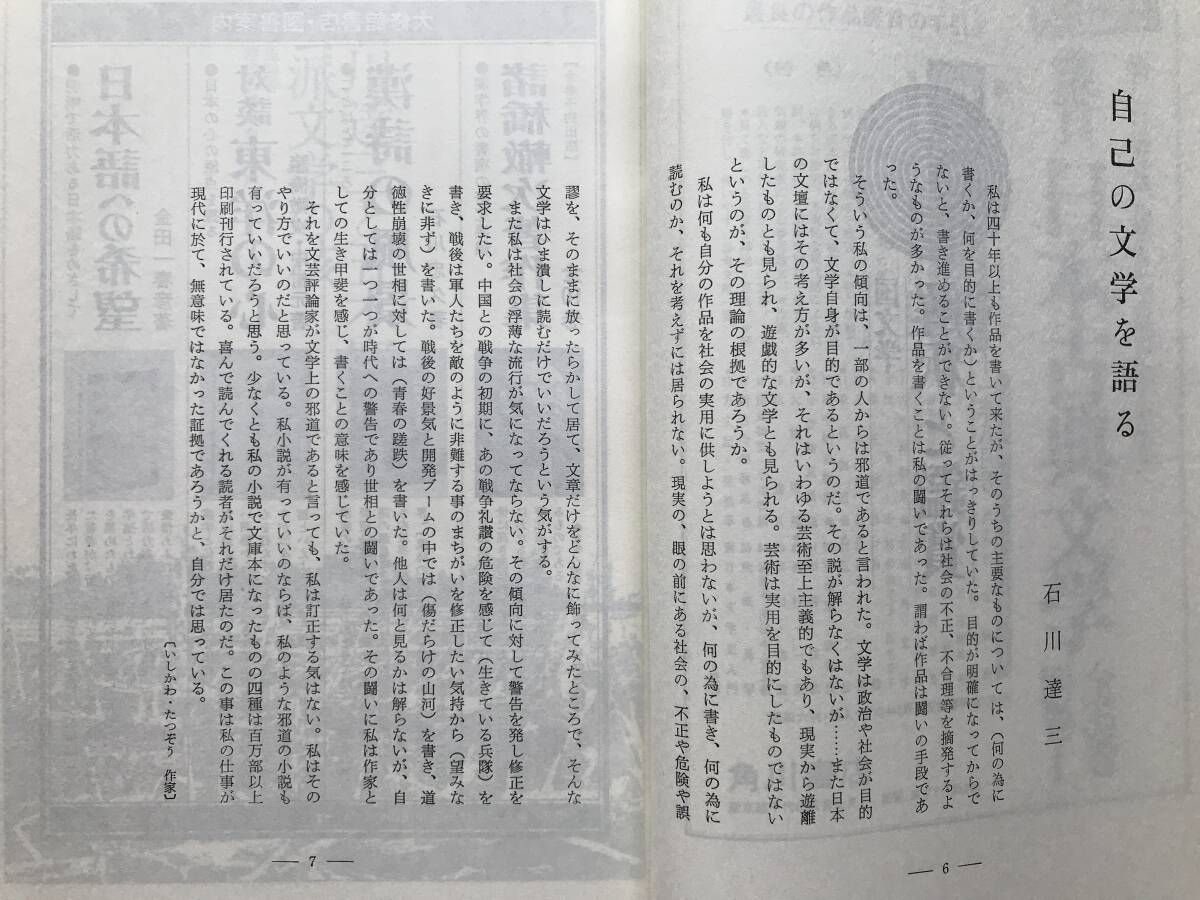 自己の文学を語る
石川達三
私は四十年以上も作品を書いて来たが、そのうちの主要なものについては、（何の為に
書くか、何を目的に書くか）ということがはっきりしていた。目的が明確になってからで
ないと、書き進めることができない。従ってそれらは社会の不正、不合理等を摘発するよ
うなものが多かった。作品を書くことは私の闘いであった。謂わば作品は闘いの手段であ
った。
そういう私の傾向は、一部の人からは邪道であると言われた。文学は政治や社会が目的
ではなくて、文学自身が目的であるというのだ。その説が解らなくはないが……また日本
の文壇にはその考え方が多いが、それはいわゆる芸術至上主義的でもあり、現実から遊離
したものとも見られ、遊戯的な文学とも見られる。芸術は実用を目的にしたものではない
というのが、その理論の根拠であろうか。
私は何も自分の作品を社会の実用に供しようとは思わないが、何の為に書き、何の為に
読むのか、それを考えずには居られない。現実の、眼の前にある社会の、不正や危険や誤
— 6 —
謬を、そのままに放ったらかして居て、文章だけをどんなに飾ってみたところで、そんな
文学はひま潰しに読むだけでいいだろうという気がする。
また私は社会の浮薄な流行が気になってならない。その傾向に対して警告を発し修正を
要求したい。中国との戦争の初期に、あの戦争礼讃の危険を感じて（生きている兵隊）を
書き、戦後は軍人たちを敵のように非難する事のまちがいを修正したい気持から（望みな
きに非ず）を書いた。戦後の好景気と開発ブームの中では（傷だらけの山河）を書き、道
徳性崩壊の世相に対しては（青春の蹉跌）を書いた。他人は何と見るかは解らないが、自
分としては一つ一つが時代への警告であり世相との闘いであった。その闘いに私は作家と
しての生き甲斐を感じ、書くことの意味を感じていた。
それを文芸評論家が文学上の邪道であると言っても、私は訂正する気はない。私はその
やり方でいいのだと思っている。私小説が有っていいのならば、私のような邪道の小説も
有っていいだろうと思う。少なくとも私の小説で文庫本になったものの四種は百万部以上
印刷刊行されている。喜んで読んでくれる読者がそれだけ居たのだ。この事は私の仕事が
現代に於て、無意味ではなかった証拠であろうかと、自分では思っている。
〔いしかわ・たつぞう 作家〕
— 7 —